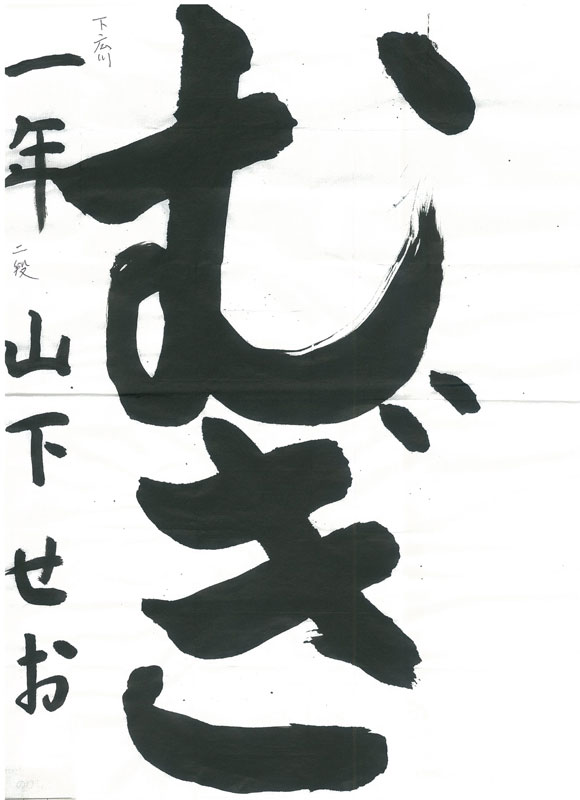 むぎ
下広川
一年 山下せお
二段